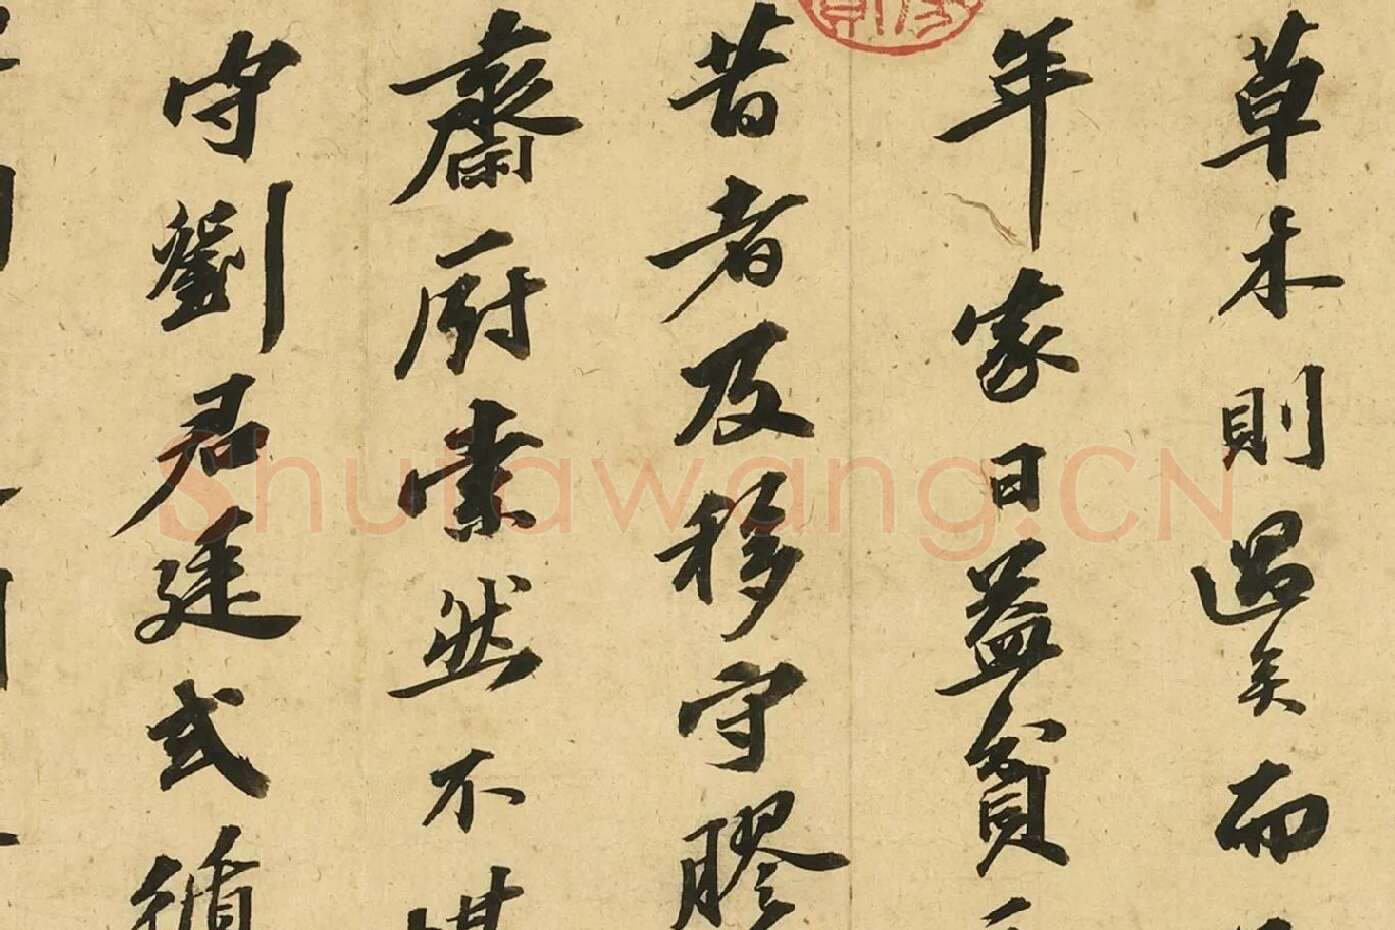 草木則過矣而
年家日益貧
昔者及移守膠
齋厨索然不堪
守劉君廷式循
Shufawang.CN